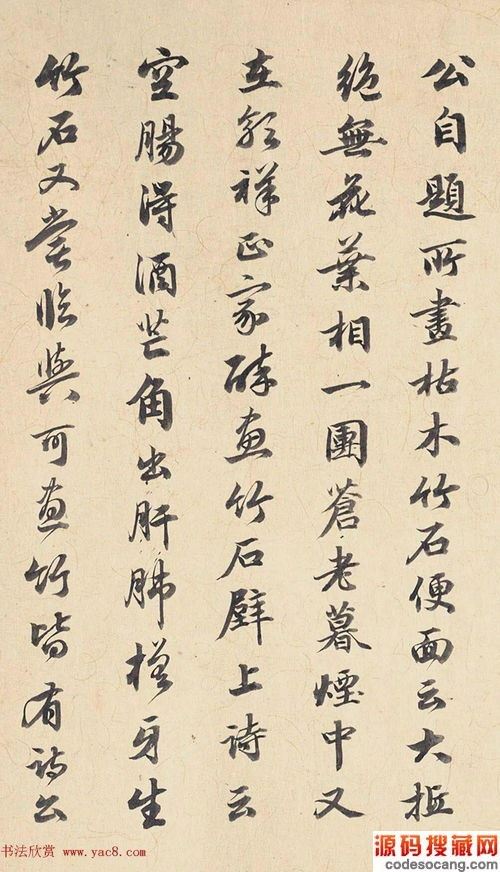 公自題所畫枯木竹石便面云大抵
絕無花葉相一團蒼老暮煙中又
在郭祥正家醉畫竹石壁上詩云
空腸得酒芒角出肝肺槎牙生
竹石又嘗臨與可畫竹皆有詩公
书法欣赏 www.yac8.com
源码搜藏网
codesocang.com